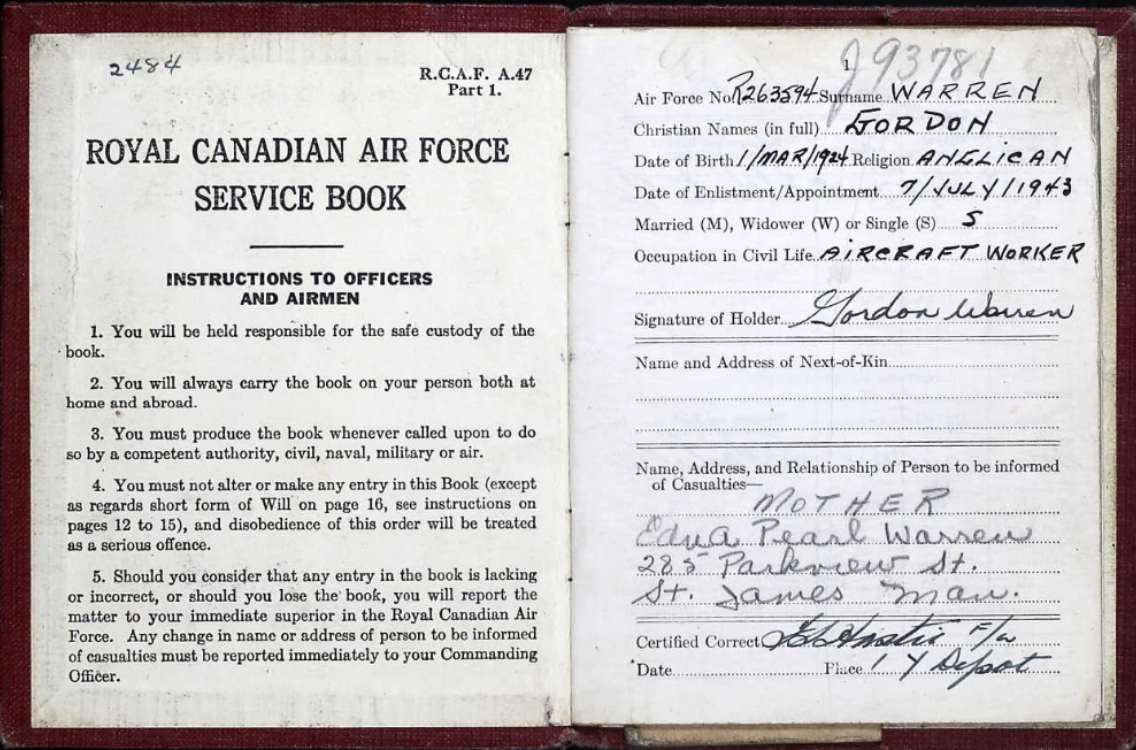 2484
R.C.A.F. A.47
Part 1.
ROYAL CANADIAN AIR FORCE
SERVICE BOOK
INSTRUCTIONS TO OFFICERS
AND AIRMEN
1. You will be held responsible for the safe custody of the
book.
2. You will always carry the book on your person both at
home and abroad.
3. You must produce the book whenever called upon to do
so by a competent authority, civil, naval, military or air.
4. You must not alter or make any entry in this Book (except
as regards short form of Will on page 16, see instructions on
pages 12 to 15), and disobedience of this order will be treated
as a serious offence.
5. Should you consider that any entry in the book is lacking
or incorrect, or should you lose the book, you will report the
matter to your immediate superior in the Royal Canadian Air
Force. Any change in name or address of person to be informed
of casualties must be reported immediately to your Commanding
Officer.
J93781
1
Air Force No. R263594 Surname WARREN
Christian Names (in full) GORDON
Date of Birth 1/MAR/1924 Religion ANGLICAN
Date of Enlistment/Appointment 7/JULY/1943
Married (M), Widower (W) or Single (S) S
Occupation in Civil Life AIRCRAFT WORKER
Signature of Holder Gordon Warren
Name and Address of Next-of-Kin
Name, Address, and Relationship of Person to be informed
of Casualties—
MOTHER
Edna Pearl Warren
285 Parkview St.
St. James Man.
Certified Correct F/
Date Place 1 Y Depot